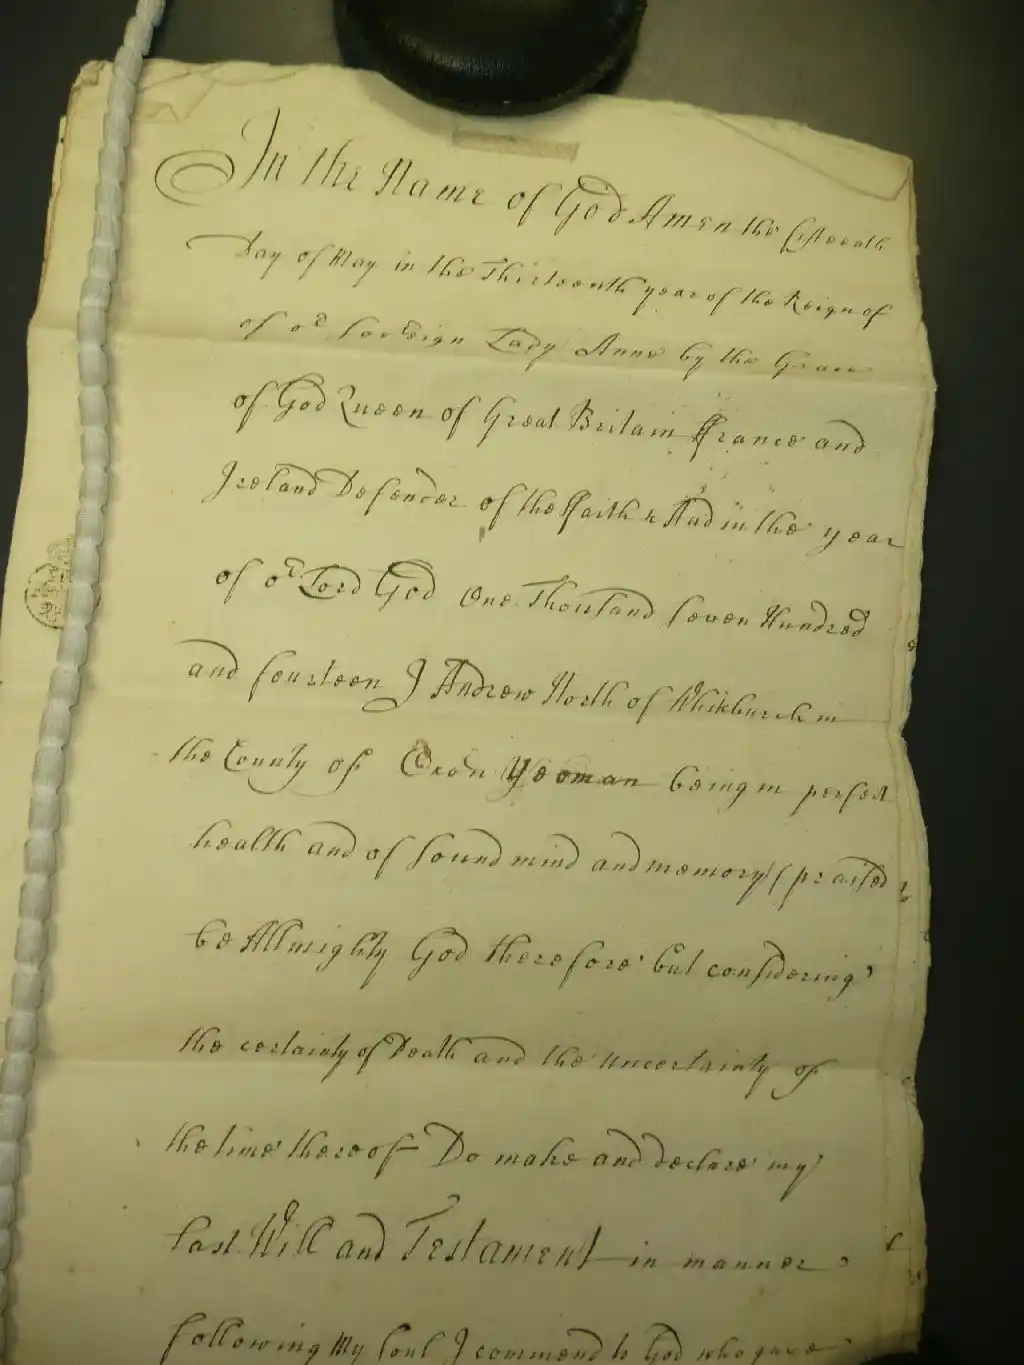 In the Name of God Amen the fifteenth
Day of May in the Thirteenth year of the Reign of
of or Sovereign Lady Anne by the Grace
of God Queen of Great Britain France and
Ireland Defender of the Faith & And in the year
of or Lord God One Thousand seven Hundred
and fourteen I Andrew North of Whitchurch in
the County of Oxon Yeoman being in perfect
health and of sound mind and memory (praised
be Allmighty God therefore but considering
the certainty of Death and the uncertainty of
the time thereof Do make and declare my
last Will and Testament in manner
following My soul I commend to God who gave